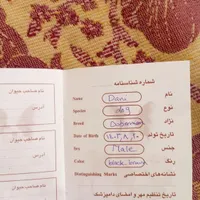 شماره شناسنامه
نام صاحب حیوان
آدرس
نام صاحب حیوان
آدرس
Name Dan نام
Species نوع
Breed Doberman نژاد
Date of Birth تاریخ تولد
Sex Male جنس
Color black, brown رنگ
Distinguishing Marks نشانه‌های اختصاصی
تاریخ تنظیم مهر و امضای دامپزشک